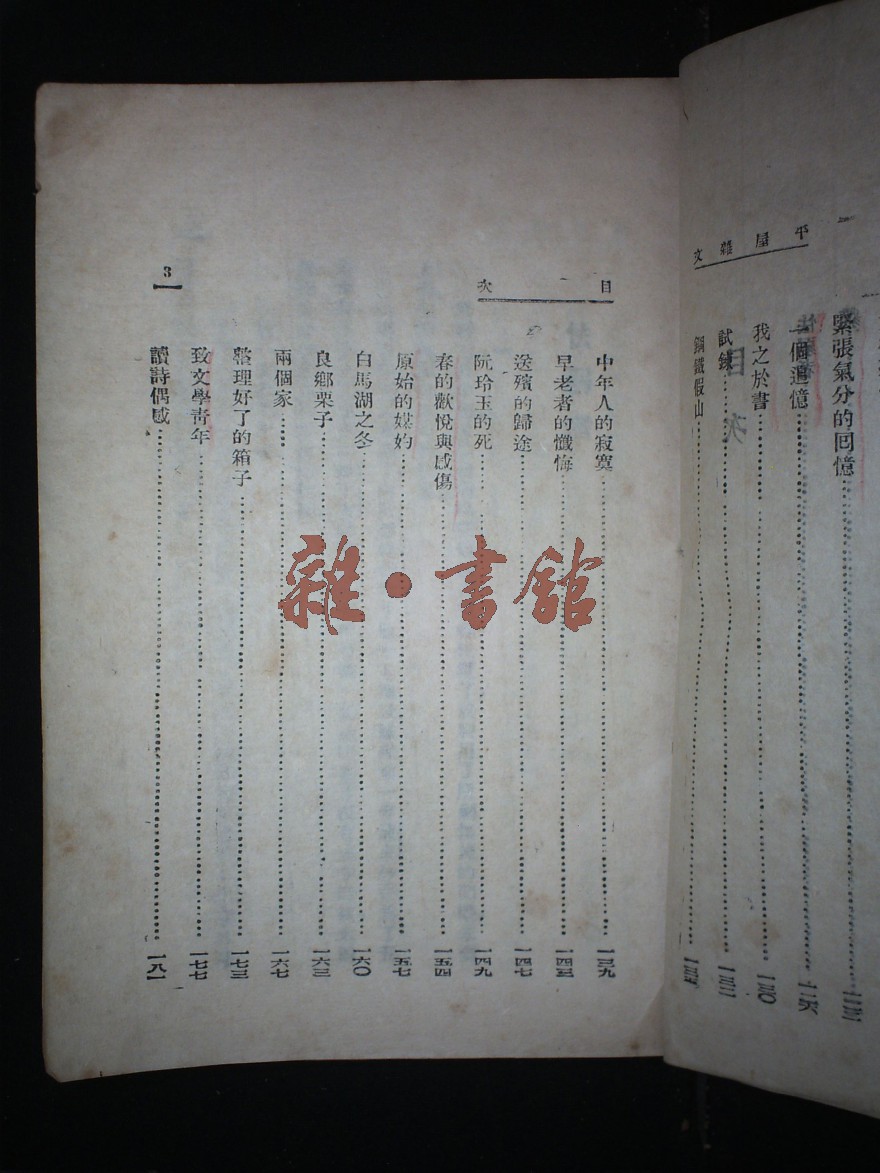 平屋雜文
緊張氣分的回憶
一個追憶……一二六
我之於書……一三〇
試鍊……一三三
鋼鐵假山
目次
中年人的寂寞……一三九
早老者的懺悔……一四三
送殯的歸途……一四七
阮玲玉的死……一四九
春的歡悅與感傷……一五四
原始的媒妁……一五七
白馬湖之冬……一六〇
良鄉栗子……一六三
兩個家……一六七
整理好了的箱子……一七三
致文學青年……一七七
讀詩偶感……一八一
3
雜·書館